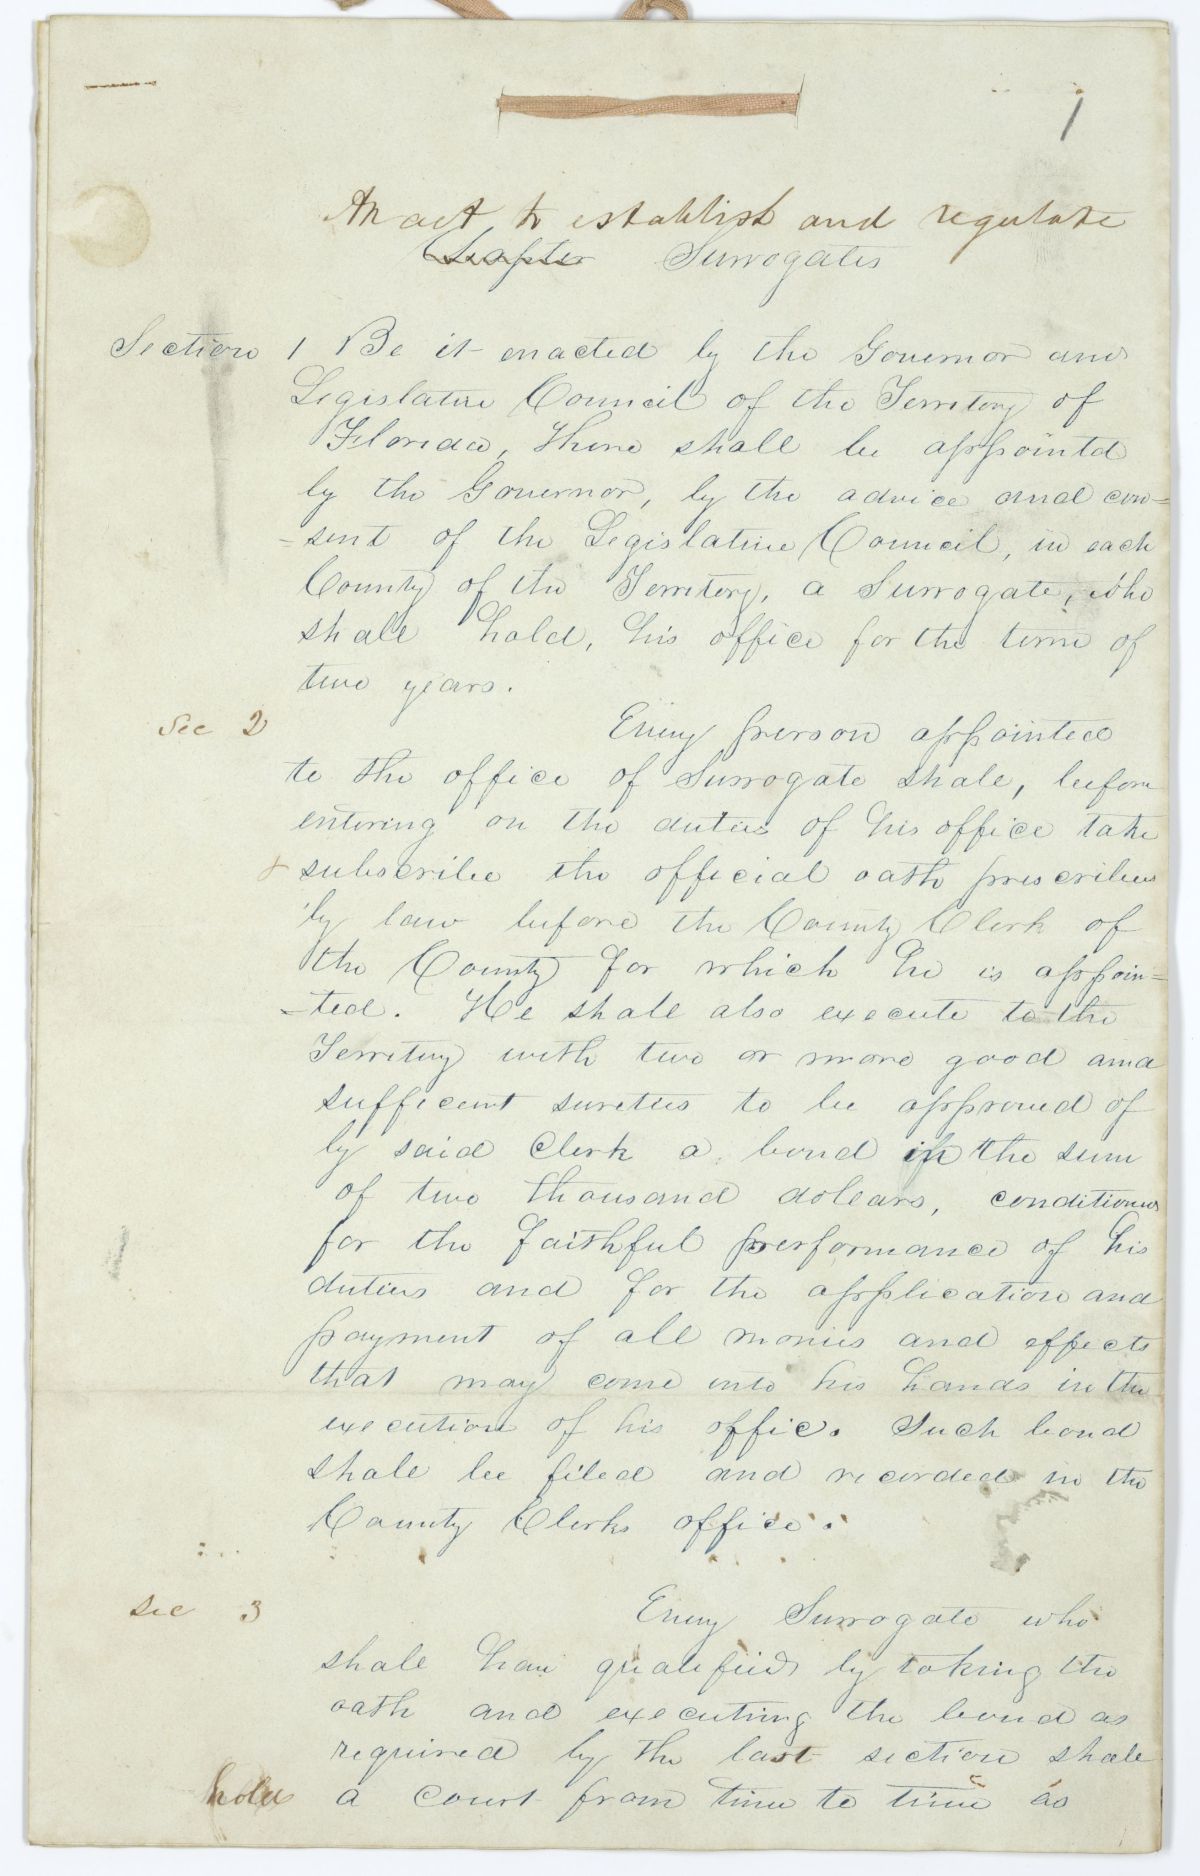 1
An act to establish and regulate
Chapter Surrogates
Section 1 Be it enacted by the Governor and
Legislative Council of the Territory of
Florida, there shall be appointd
by the Governor, by the advice and con-
-sent of the Legislative Council, in each
County of the Territory, a Surrogate, who
shall hold, his office for the term of
two years.
Sec 2 Every person appointed
to the office of Surrogate shall, before
entering on the duties of his office take
& subscribe the official oath prescribed
by law before the County Clerk of
the County for which he is appoin-
-ted. He shall also execute to the
Territory with two or more good and
sufficent sureties to be approved of
by said Clerk a bond in the sum
of two thousand dollars, conditioned
for the faithful performance of his
duties and for the application and
payment of all monies and effects
that may come into his hands in the
execution of his offic. Such bond
shall be filed and recorded in the
County Clerks office.
Sec 3 Every Surrogate who
shall have qualified by taking the
oath and executing the bond as
required by the last section shall
hold a court from time to time as